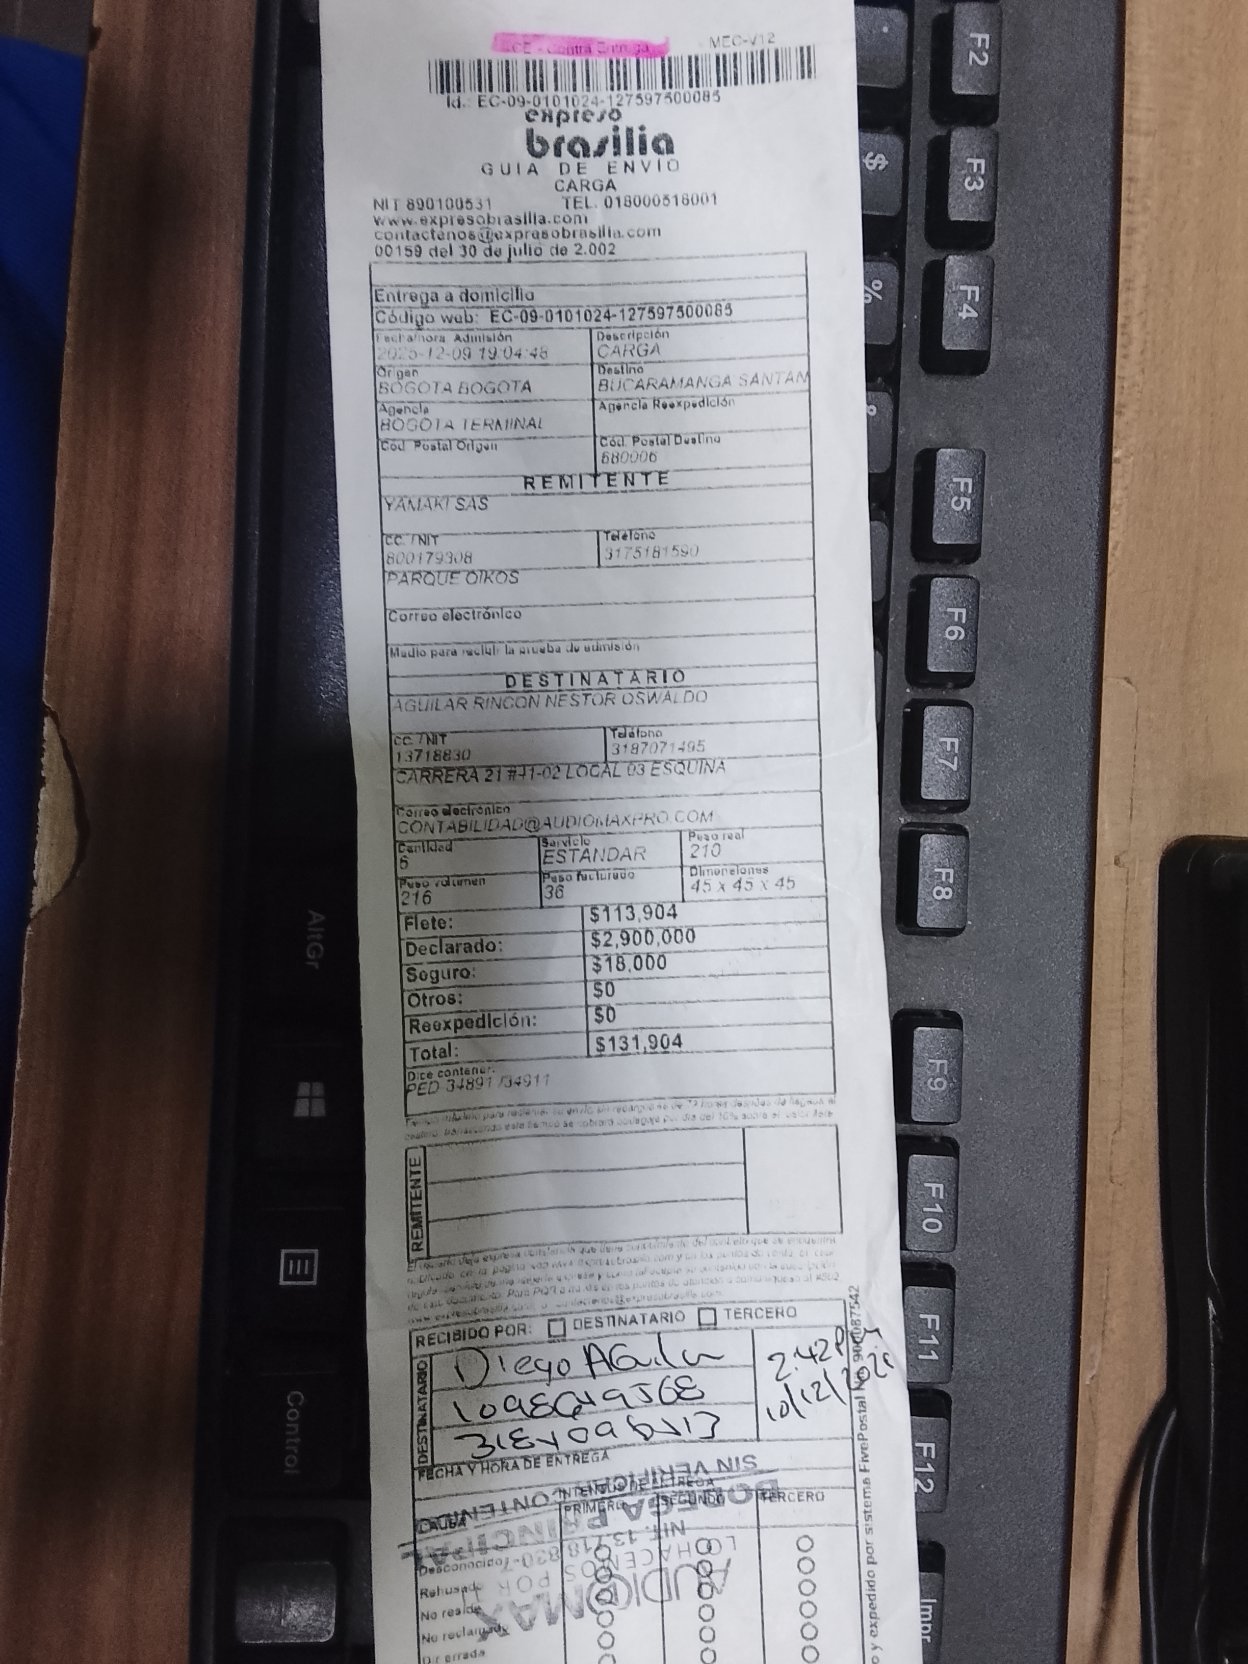 ECE - Contra Entrega MEC-V12
Id.: EC-09-0101024-127597500085
expreso
brasilia
GUIA DE ENVIO
CARGA
NIT 890100531 TEL. 018000518001
www.expresobrasilia.com
contactenos@expresobrasilia.com
00159 del 30 de julio de 2.002
Entrega a domicilio
Código web: EC-09-0101024-127597500085
Fecha/hora Admisión Descripción
2025-12-09 19:04:48 CARGA
Origen Destino
BOGOTA BOGOTA BUCARAMANGA SANTAN
Agencia Agencia Reexpedición
BOGOTA TERMINAL
Cód. Postal Origen Cód. Postal Destino
680006
REMITENTE
YAMAKI SAS
CC. /NIT Teléfono
800179308 3175181590
PARQUE OIKOS
Correo electrónico
Medio para recibir la prueba de admisión
DESTINATARIO
AGUILAR RINCON NESTOR OSWALDO
CC. /NIT Teléfono
13718830 3187071495
CARRERA 21 #41-02 LOCAL 03 ESQUINA
Correo electrónico
CONTABILIDAD@AUDIOMAXPRO.COM
Cantidad Servicio Peso real
6 ESTANDAR 210
Peso volumen Peso facturado Dimensiones
216 36 45 x 45 x 45
Flete: $113,904
Declarado: $2,900,000
Seguro: $18,000
Otros: $0
Reexpedición: $0
Total: $131,904
Dice contener:
PED 34891 /34911
REMITENTE
RECIBIDO POR: DESTINATARIO TERCERO
DESTINATARIO
Diego Aguilar
2:42 PM
10/12/
FECHA Y HORA DE ENTREGA
INTENTO DE ENTREGA
CAUSA PRIMERO SEGUNDO TERCERO
Desconocido
Rehusado
No reside
No reclamado
Dir errada
SIN VERIFICAR CONTENIDO
BODEGA PRINCIPAL
NIT. 13.718.830-7
LO HACEMOS POR
AUDIOMAX
o y expedido por sistema FivePostal No. 900087542
F2
F3
F4
F5
F6
F7
F8
F9
F10
F11
F12
Impr
$
%
AltGr
Control